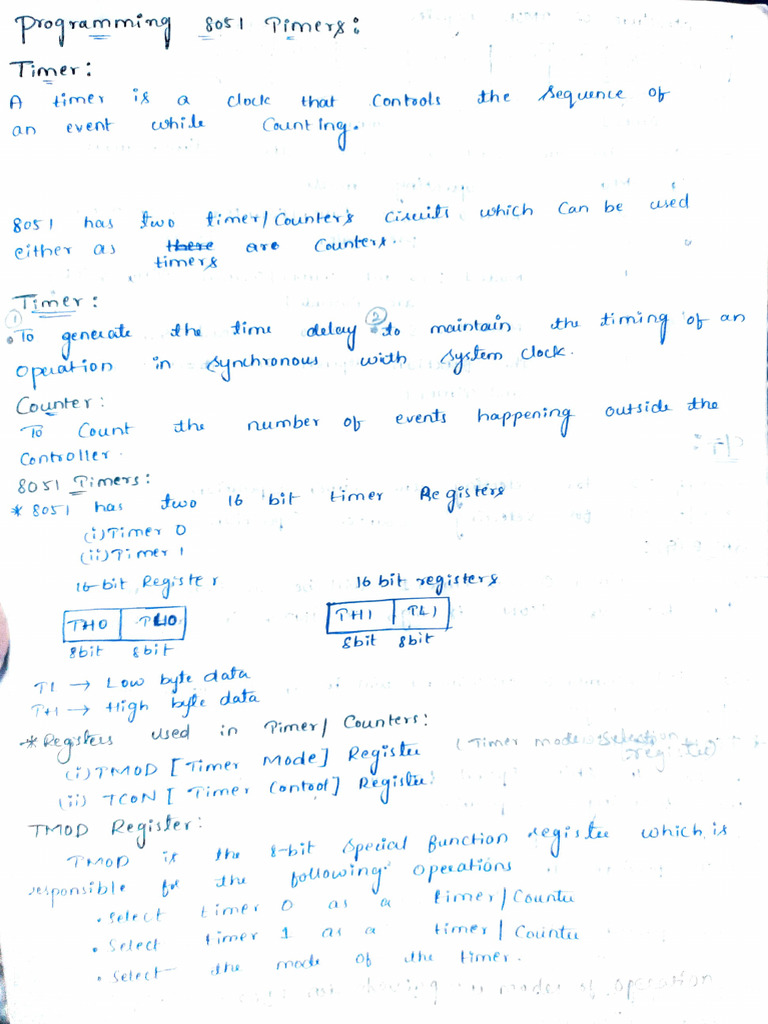 Programming 8051 Timers:
Timer:
A timer is a clock that Contools the Sequence of
an event while Counting.
8051 has two timer/Counters circuits which Can be used
either as there are Counters.
timers
Timer:
① To generate the time delay ② to maintain the timing of an
Operation in synchronous with system clock.
Counter:
To Count the number of events happening outside the
Controller.
8051 Timers:
* 8051 has two 16 bit timer Registers
(i) Timer 0
(ii) Timer 1
16-bit Register 16 bit registers
TH0 TL0 TH1 TL1
8bit 8bit 8bit 8bit
Tl → Low byte data
TH → High byte data
* Registers used in Timer/Counters:
(i) TMOD [Timer Mode] Register (Timer mode Selection
register)
(ii) TCON [Timer Contool] Register:
TMOD Register:
TMOD is the 8-bit special function register which is
responsible for the following operations
• Select timer 0 as a timer/Counter
• Select timer 1 as a timer/Counter
• Select the mode of the timer.